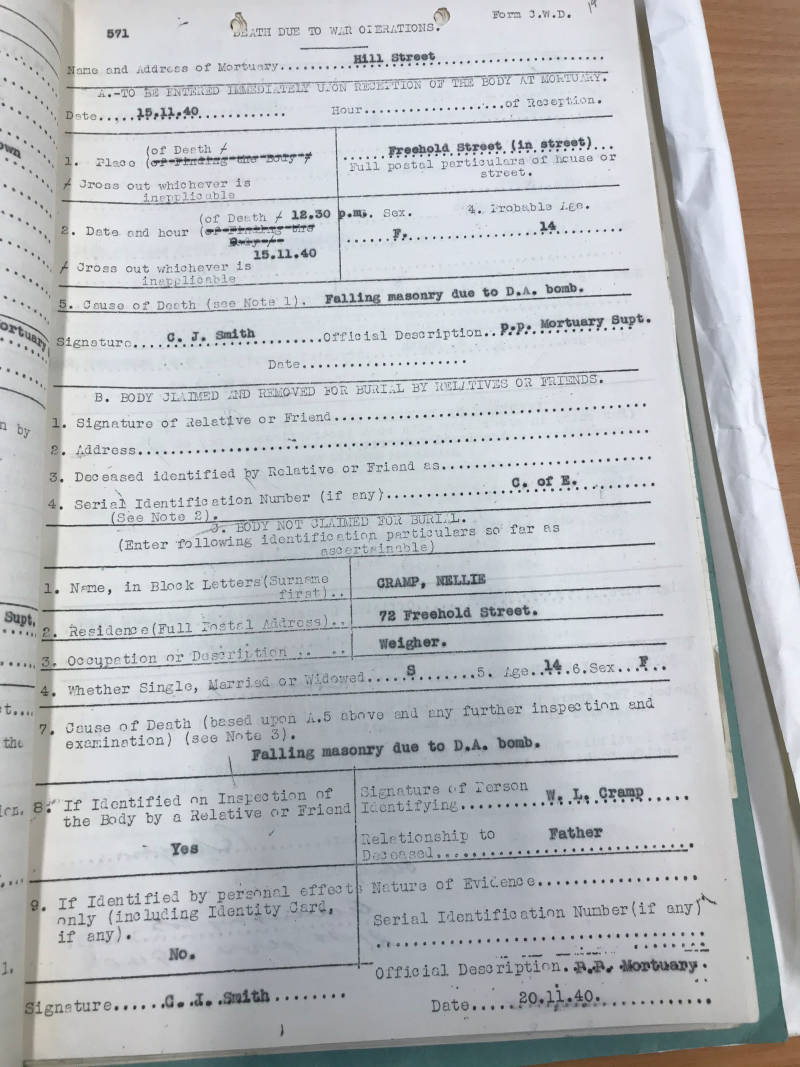 571
DEATH DUE TO WAR OPERATIONS.
Form C.W.D.
Name and Address of Mortuary......Hill Street......
A.-TO BE ENTERED IMMEDIATELY UPON RECEPTION OF THE BODY AT MORTUARY.
Date.....15.11.40............ Hour...................of Reception.
1. Place (of Death /
(of Finding the Body /
/ Cross out whichever is
inapplicable
......Freehold Street (in street)...
Full postal particulars of house or
street.
2. Date and hour (of Death / 12.30 p.m.
(of Finding the
Body /
15.11.40
/ Cross out whichever is
inapplicable
Sex. 4. Probable Age.
......F...............14.........
5. Cause of Death (see Note 1). Falling masonry due to D.A. bomb.
Signature....C. J. Smith.........Official Description..P.P. Mortuary Supt.
Date.....................
B. BODY CLAIMED AND REMOVED FOR BURIAL BY RELATIVES OR FRIENDS.
1. Signature of Relative or Friend.....................................
2. Address.....................................
3. Deceased identified by Relative or Friend as.........................
4. Serial Identification Number (if any)...............C. of E..........
(See Note 2).
C. BODY NOT CLAIMED FOR BURIAL.
(Enter following identification particulars so far as
ascertainable)
1. Name, in Block Letters(Surname
first)..
CRAMP, NELLIE
2. Residence(Full Postal Address)..
72 Freehold Street.
3. Occupation or Description .. ..
Weigher.
4. Whether Single, Married or Widowed.....S.........5. Age..14...6.Sex...F
7. Cause of Death (based upon A.5 above and any further inspection and
examination) (see Note 3).
Falling masonry due to D.A. bomb.
8. If Identified on Inspection of
the Body by a Relative or Friend
Yes
Signature of Person
Identifying..........W. L. Cramp......
Relationship to Father
Deceased..............................
9. If Identified by personal effects
only (including Identity Card,
if any).
No.
Nature of Evidence..................
Serial Identification Number(if any)
Official Description. P.P. Mortuary.
Signature......C. J. Smith.........
Date......20.11.40..............
own
ortuary
n by
Supt.
the